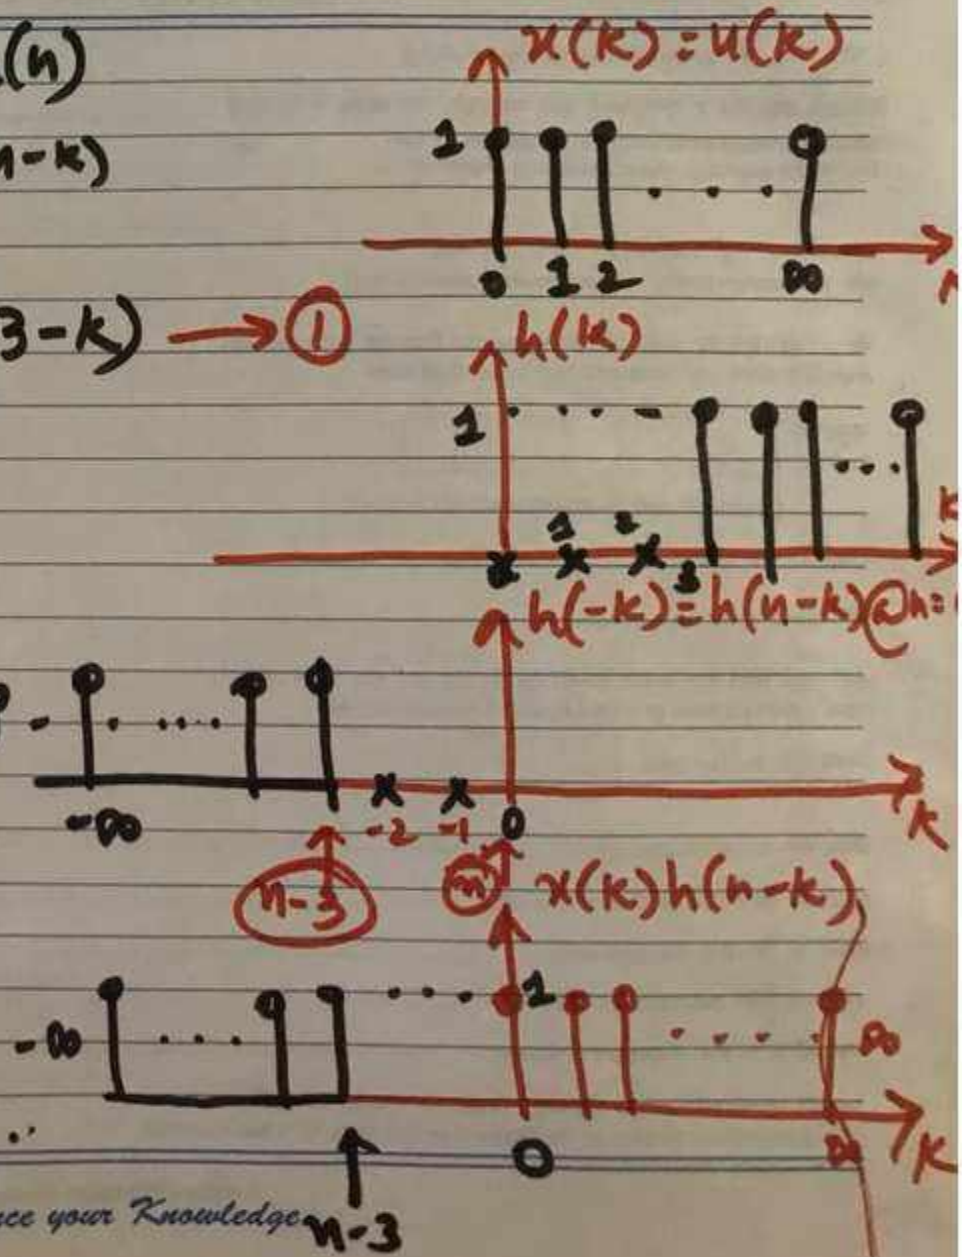 (n)
x(k) = u(k)
n-k)
1
0 1 2 ∞
3-k) → ①
h(k)
1
1 2
3
k
h(-k) = h(n-k)@n=
-∞ -2 -1 0
k
n-3 n
x(k)h(n-k)
1
-∞ ∞
0 ∞ k
n-3
nce your Knowledge